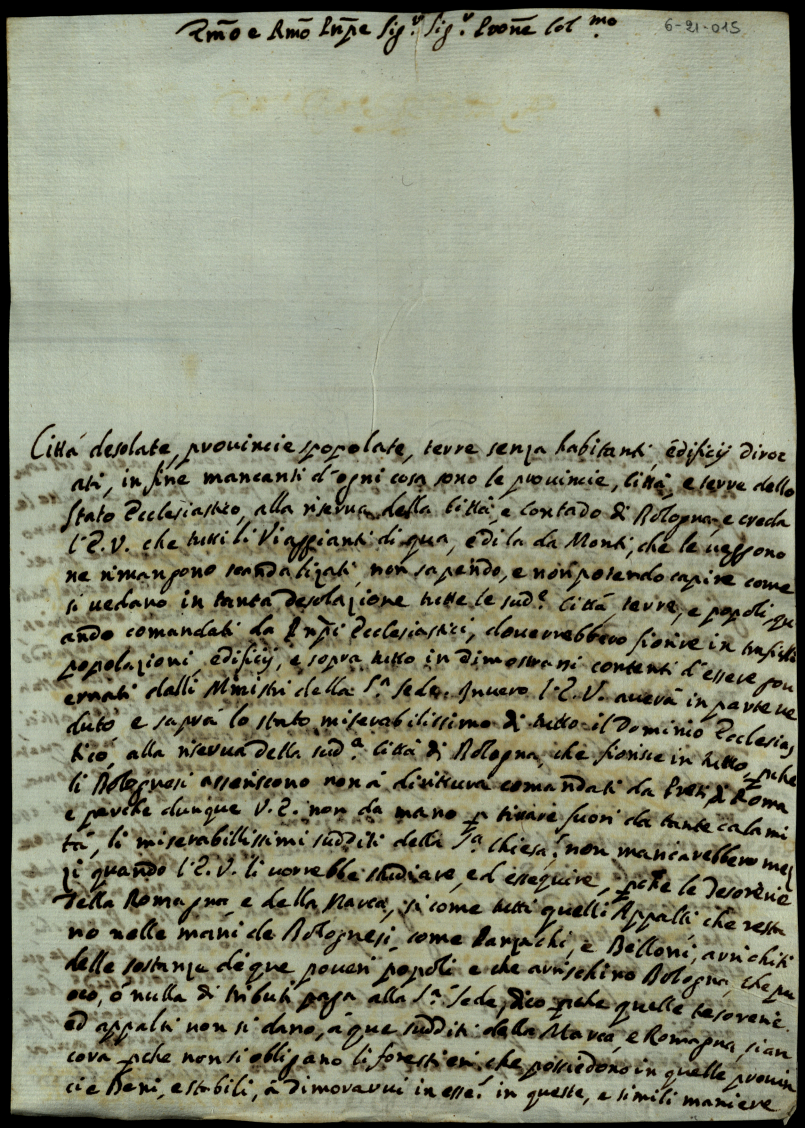 Emõ e Rmõ Prñpe Sig.r Sig.r Proñe Col.mo
6-21-015
Cittá desolate, prouincie spopolate, terre senza habitanti edificij diroc
ati, in fine mancanti d'ogni cosa sono le prouincie, Cittá, e terre dello
Stato Ecclesiastico, alla riserua della Cittá, e Contado di Bologna, e creda
l'E.V. che tutti li Viaggianti di qua, e di la da Monti, che le ueggono
ne rimangono scandalizati, non sapendo, e non potendo capire come
si uedano in tanta desolazione tutte le sud.e Cittá, terre, e popoli, qu
ando comandati da Prñpi Ecclesiastici, douerrebbero fiorire in
popolazioni edificij, e sopra tutto in dimostrarsi contenti d'essere gou
ernati dalli Ministri della S.a Sede. Inuero l'E.V. auerá in parte ue
duto e saprá lo stato miserabilissimo di tutto il Dominio Ecclesias
tico, alla riserua della sud.a Cittá di Bologna, che fiorisce in tutto, pche
li Bolognesi asseriscono non á dirittura comandati da Preti di Roma
e perche dunque V.E. non da mano p tirare fuori da tante calami
tá, li miserabillissimi sudditi della S.a Chiesa? non mancarebbero mez
zi quando l'E.V. li uorrebbe studiare, ed esseguire, pche le Tesorerie
della Romagna, e della Marca, si come tutti quelli Appalti che resta
no nelle mani de Bolognesi, come, e Belloni, arrichiti
delle sostanze de que poueri popoli e che arrischino Bologna, che po
oco, ó nulla di tributi paga alla S.a Sede, dico pche quelle tesorerie
ed appalti non si dano, á que sudditi della Marca, e Romagna, si an
cora pche non si obligano li forestieri, che possiedono in quelle prouin
cie Beni, e stabili, á dimorarui in esse? in queste, e simili maniere